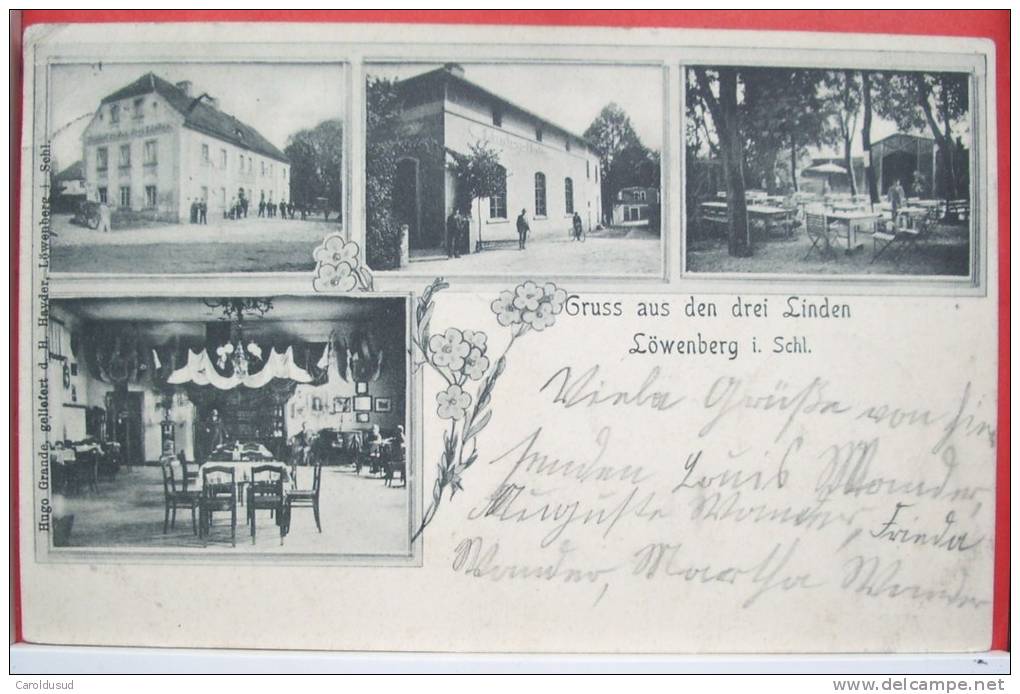 Gruss aus den drei Linden
Löwenberg i. Schl.
Viele Grüße von hier
senden Louis Wander,
Auguste Wander, Frieda
Wander, Martha Wander
Hugo Grande, geliefert d. H. Hayder, Löwenberg i. Schl.
Caroldusud
delcampe.net